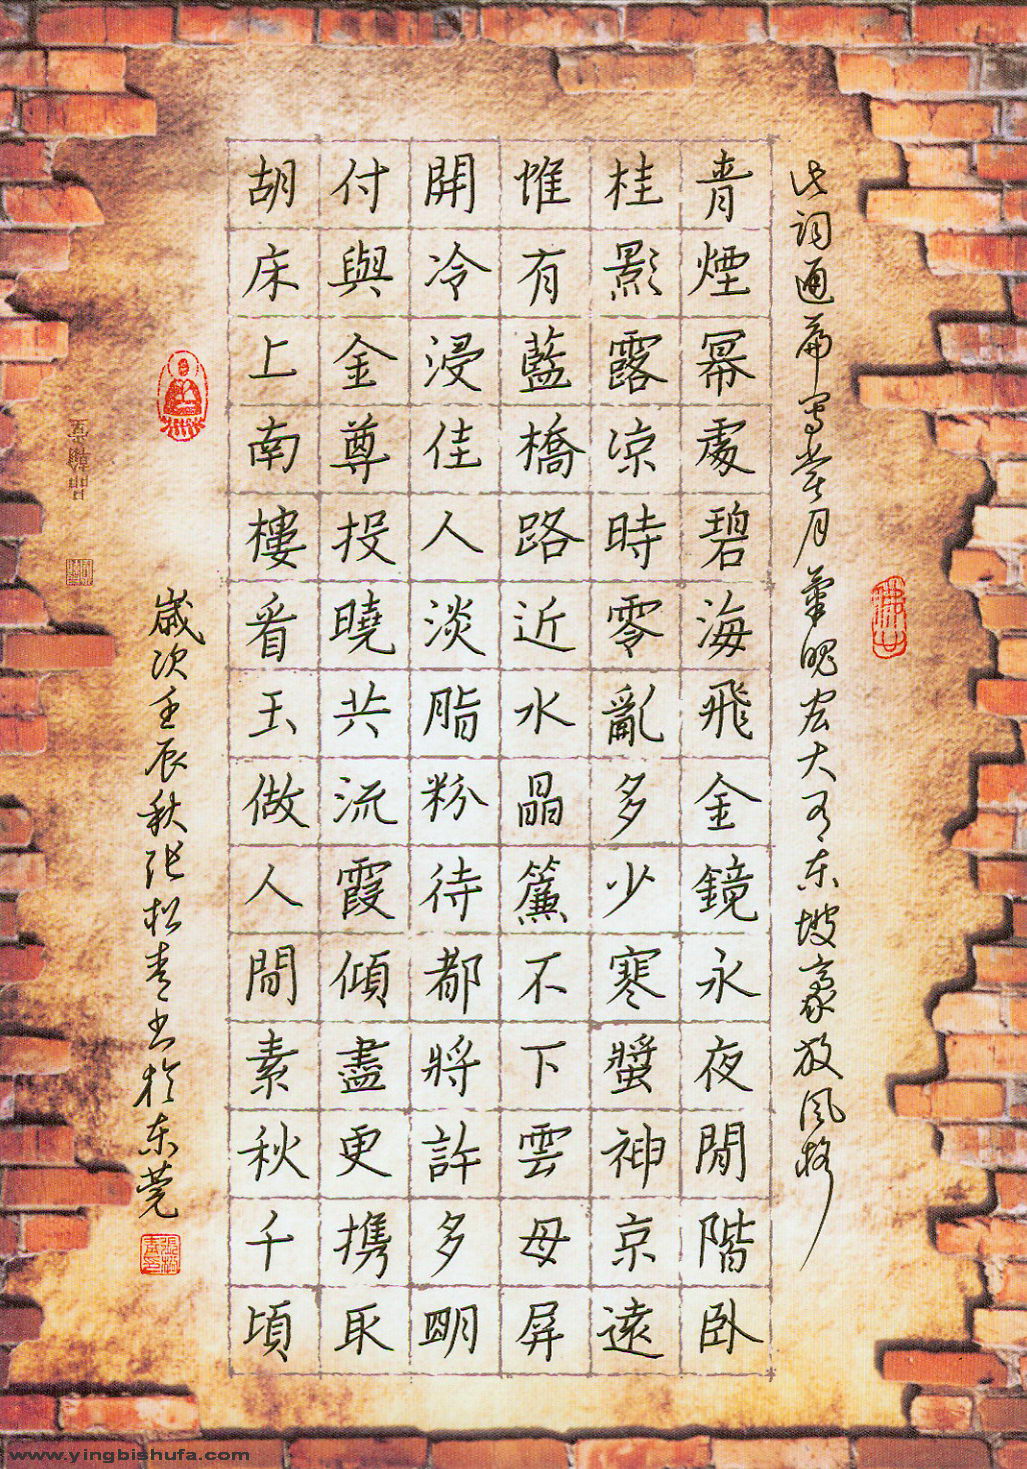 此詞通篇写赏月氣魄宏大有东坡豪放风格
青煙幂處碧海飛金鏡永夜閒階卧
桂影露凉時零亂多少寒螿神京遠
惟有藍橋路近水晶簾不下雲母屏
開冷浸佳人淡脂粉待都將許多明
付與金尊投曉共流霞傾盡更携取
胡床上南樓看玉做人間素秋千頃
歲次壬辰秋张松青书於东莞
www.yingbishufa.com